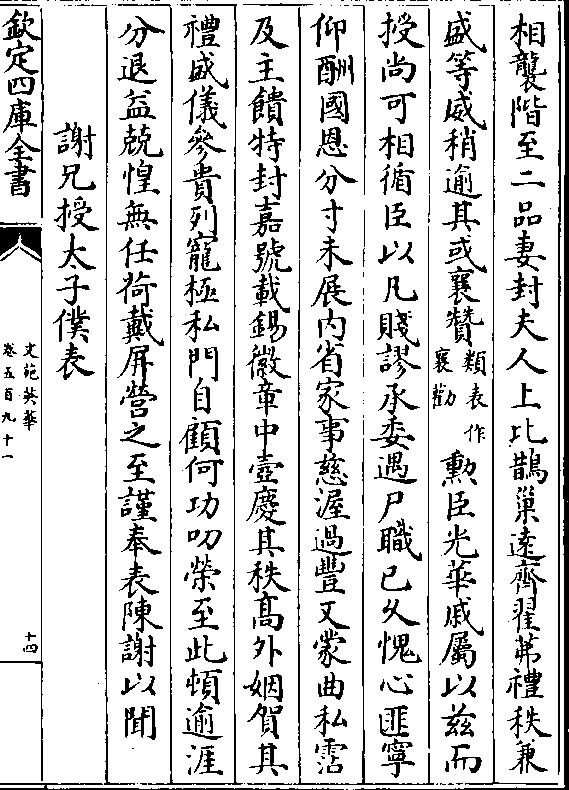 相襲階至二品妻封夫人上比鵲巢逺齊翟茀禮秩兼
盛等威稍逾其或襄贊類表作襄勸勲臣光華戚屬以兹而
授尚可相循臣以凡賤謬承委遇尸職已久愧心匪寧
仰酬國恩分寸未展内省家事慈渥過豐又蒙曲私霑
及主饋特封嘉號載錫徽章中壼慶其秩髙外姻賀其
禮盛儀參貴列寵極私門自顧何功叨榮至此頓逾涯
分退益兢惶無任荷戴屏營之至謹奉表陳謝以聞
謝兄授太子僕表
欽定四庫全書
文苑英華
卷五百九十一
十四